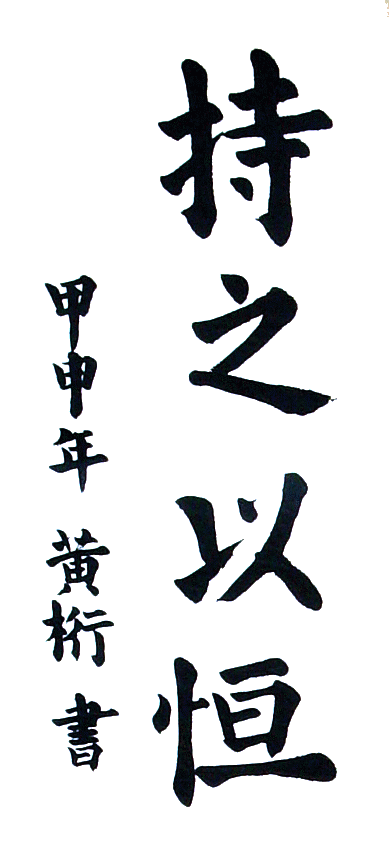 持之以恒
甲申年 黄桁 書